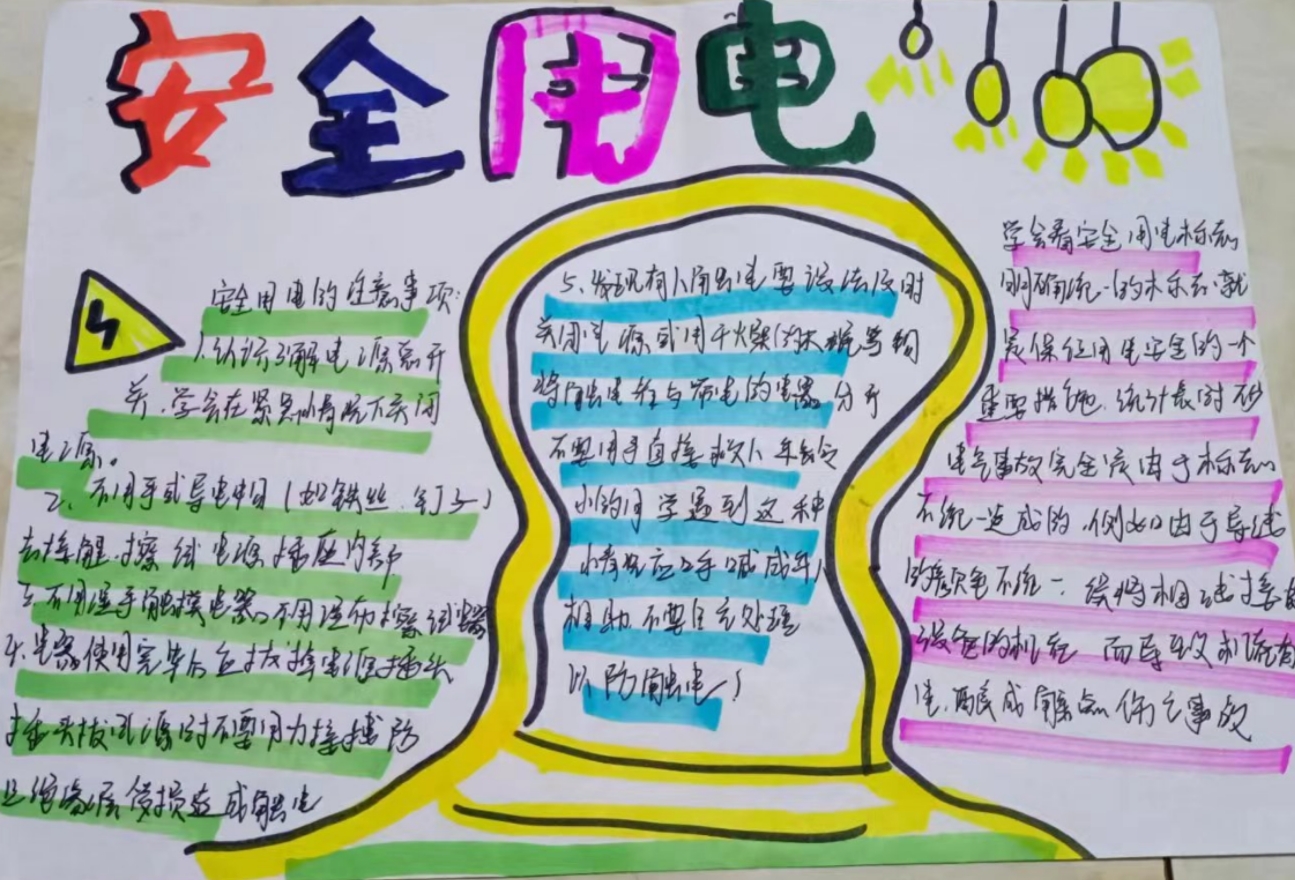 安全用电
安全用电的注意事项:
1.认识了解电源总开
关,学会在紧急情况下关闭
电源。
2、不用手或导电中目(如铁丝.钉子)
去接触.擦试电源插座内部
3.不用湿手触摸电器。不用湿布擦试电器
4.电器使用完毕后应拔掉电源插头
插头拔电源时不要用力拉拽防
止绝缘层破损造成触电
5、发现有人触电要设法及时
关闭电源或用干燥的木棍等物
将触电者与带电的电器分开
不要用手直接救人年龄
小的同学遇到这种
情况应呼喊成年人
相助不要自己处理
以防触电!
学会看安全用电标志
明确统一的标志就
是保证用电安全的一个
重要措施.统计表明不少
电气事故完全是由于标志
不统一造成的.例如由于导线
的颜色不统一.误将相线接
设备的机壳 而导致机壳带
电,酿成触电伤亡事故